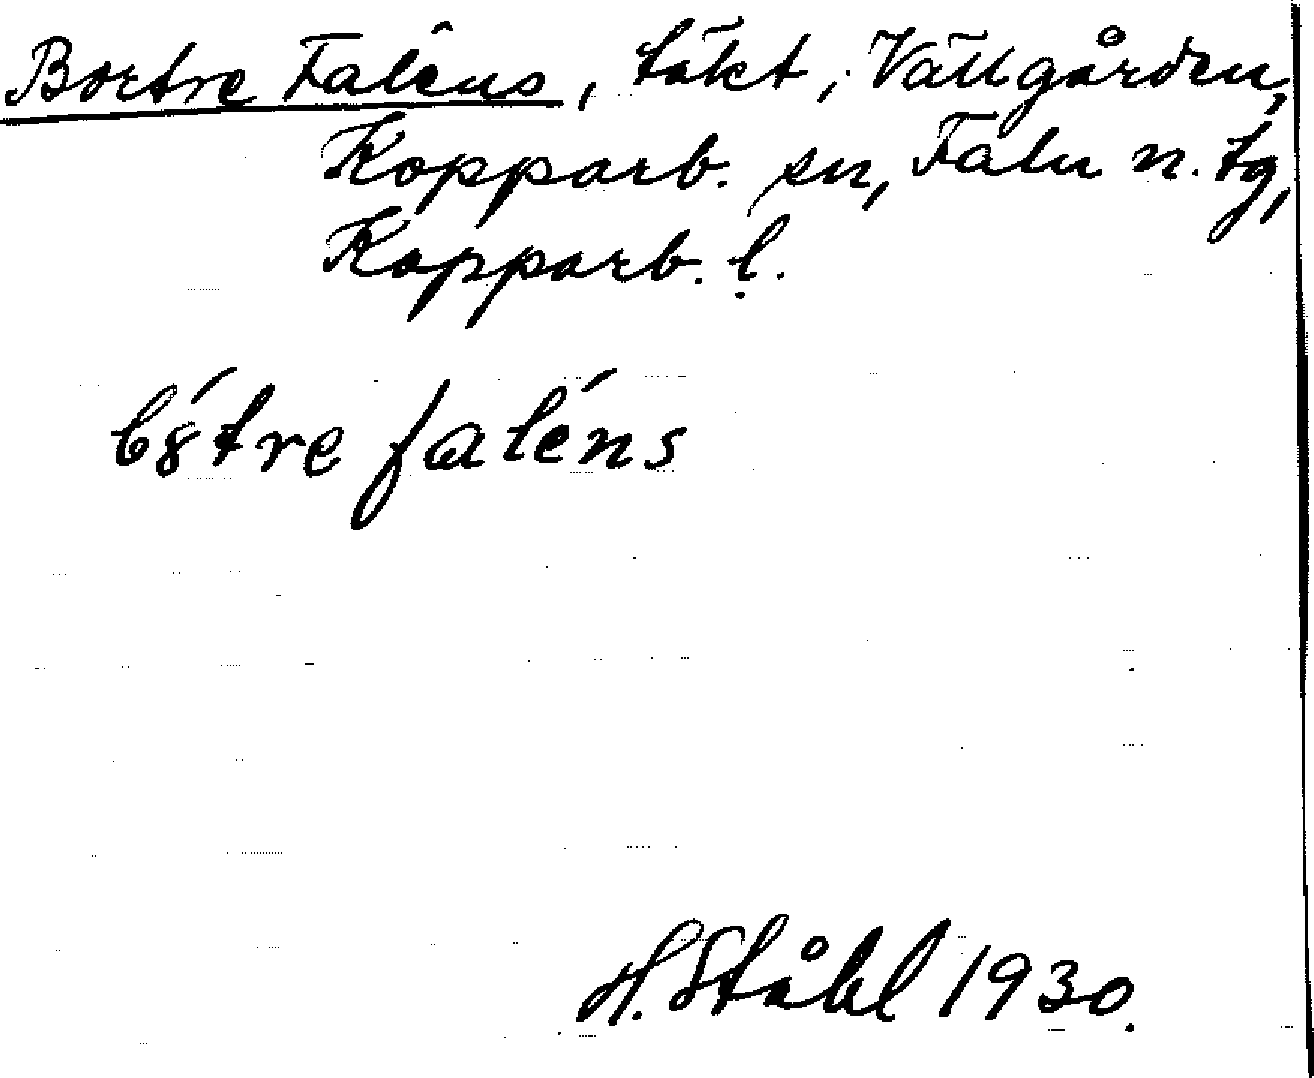 Bortre Faléns, täkt, Vällgården,
Kopparb. sn, Falu n. tg,
Kopparb. l.
bȣ́tre faléns
H. Ståhl 1930.